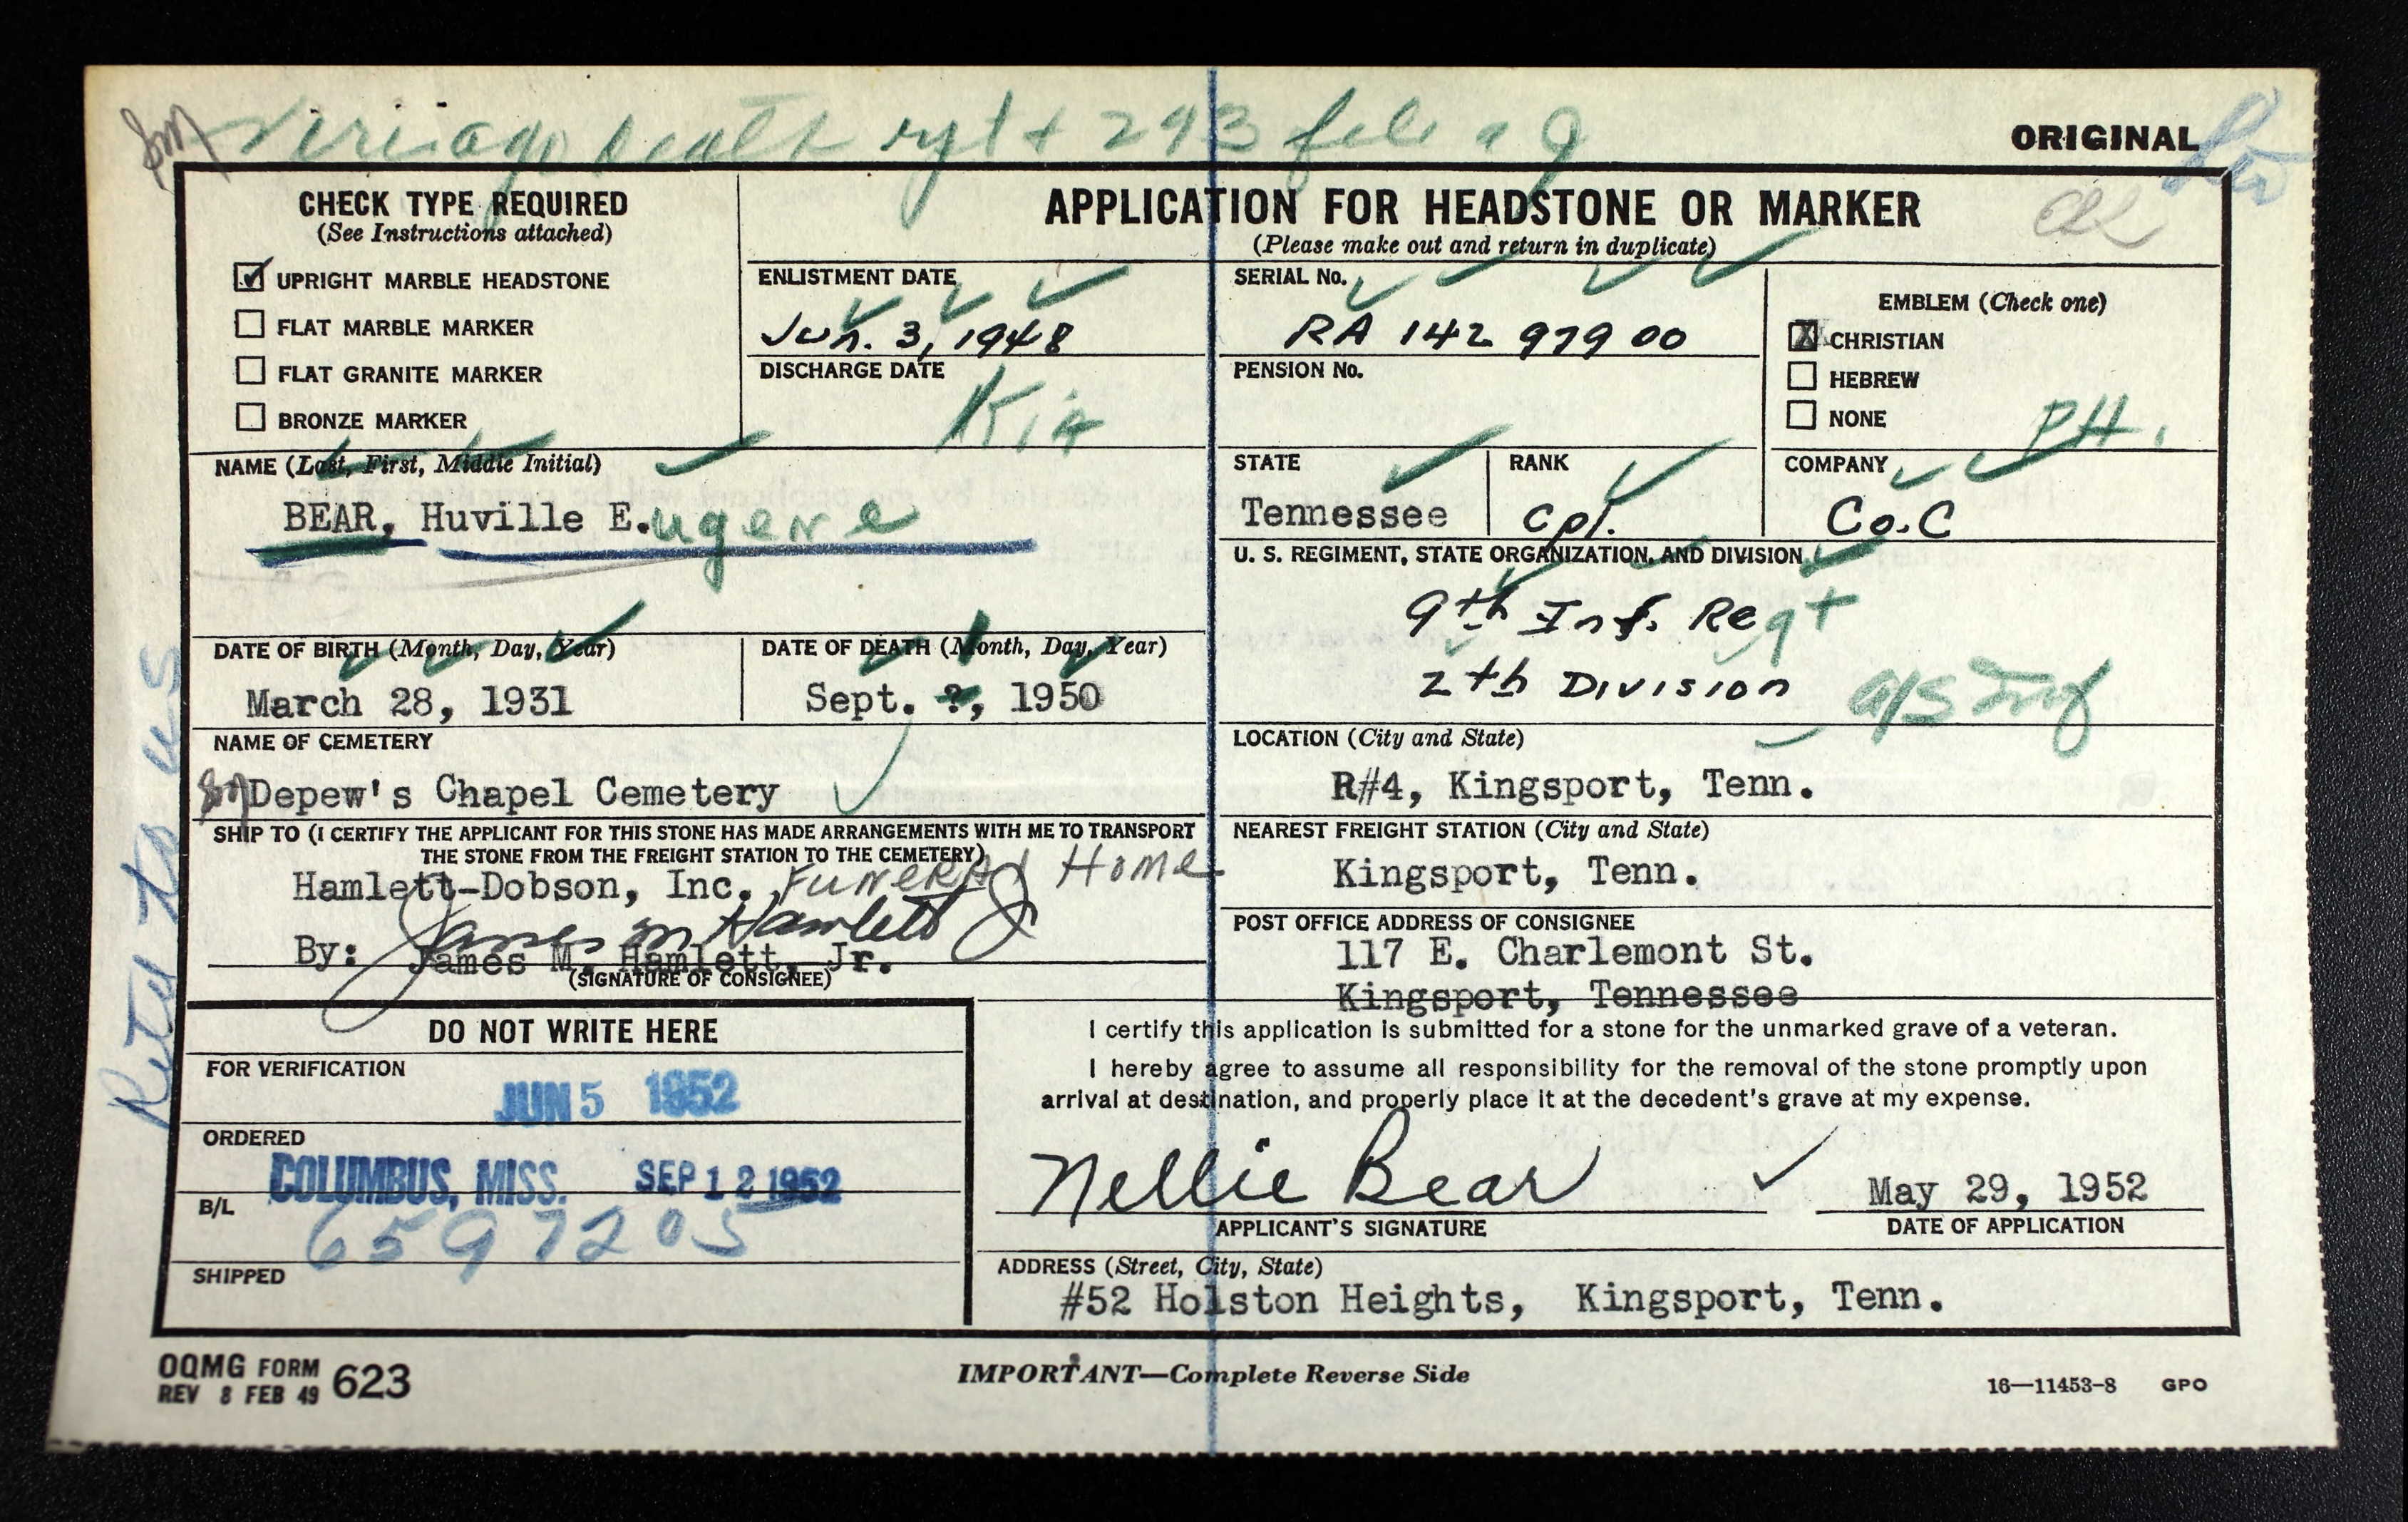 death rpt + 293 file
ORIGINAL
CHECK TYPE REQUIRED
(See Instructions attached)
UPRIGHT MARBLE HEADSTONE
FLAT MARBLE MARKER
FLAT GRANITE MARKER
BRONZE MARKER
APPLICATION FOR HEADSTONE OR MARKER
(Please make out and return in duplicate)
ENLISTMENT DATE
Jun. 3, 1948
DISCHARGE DATE
KIA
SERIAL No.
RA 142 979 00
PENSION No.
EMBLEM (Check one)
CHRISTIAN
HEBREW
NONE
PH.
NAME (Last, First, Middle Initial)
BEAR, Huville E.ugene
STATE
Tennessee
RANK
Cpl.
COMPANY
Co. C
U. S. REGIMENT, STATE ORGANIZATION, AND DIVISION
9th Inf. Regt
2th Division
DATE OF BIRTH (Month, Day, Year)
March 28, 1931
DATE OF DEATH (Month, Day, Year)
Sept. ?, 1950
NAME OF CEMETERY
Depew's Chapel Cemetery
LOCATION (City and State)
R#4, Kingsport, Tenn.
SHIP TO (I CERTIFY THE APPLICANT FOR THIS STONE HAS MADE ARRANGEMENTS WITH ME TO TRANSPORT
THE STONE FROM THE FREIGHT STATION TO THE CEMETERY)
Hamlett-Dobson, Inc. Funeral Home
James M Hamlett Jr
By: James M. Hamlett, Jr.
(SIGNATURE OF CONSIGNEE)
NEAREST FREIGHT STATION (City and State)
Kingsport, Tenn.
POST OFFICE ADDRESS OF CONSIGNEE
117 E. Charlemont St.
Kingsport, Tennessee
DO NOT WRITE HERE
FOR VERIFICATION
JUN 5 1952
ORDERED
COLUMBUS, MISS. SEP 12 1952
B/L
6597205
SHIPPED
I certify this application is submitted for a stone for the unmarked grave of a veteran.
I hereby agree to assume all responsibility for the removal of the stone promptly upon
arrival at destination, and properly place it at the decedent's grave at my expense.
Nellie Bear
May 29, 1952
APPLICANT'S SIGNATURE
DATE OF APPLICATION
ADDRESS (Street, City, State)
#52 Holston Heights, Kingsport, Tenn.
OQMG FORM 623
REV 8 FEB 49
IMPORTANT—Complete Reverse Side
16—11453-8 GPO
to us